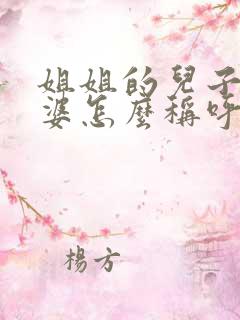 姐姐的兒子
婆怎麼稱呼
楊方